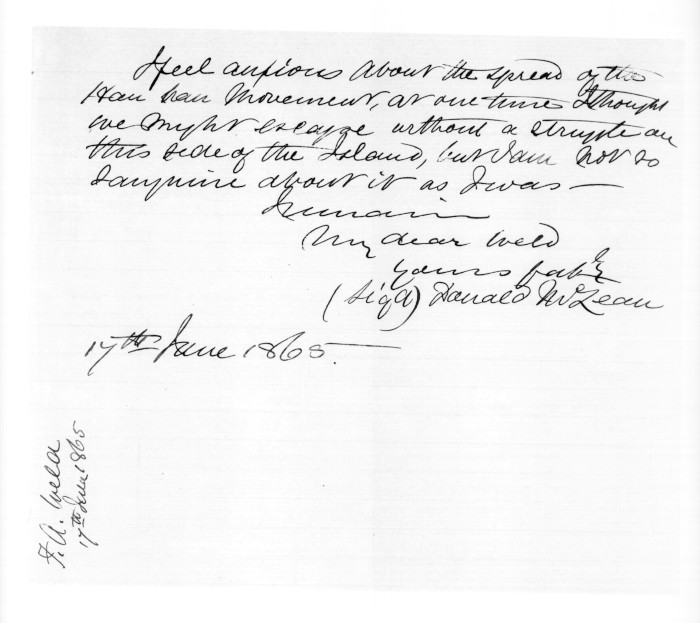 I feel anxious about the spread of the
Hau hau Movement, at one time I thought
we might escape without a struggle on
this side of the Island, but I am not so
sanguine about it as I was —
I remain
My dear Weld
Yours
(Sigd) Donald McLean
17th June 1865. —
F. A. Weld
17th June 1865